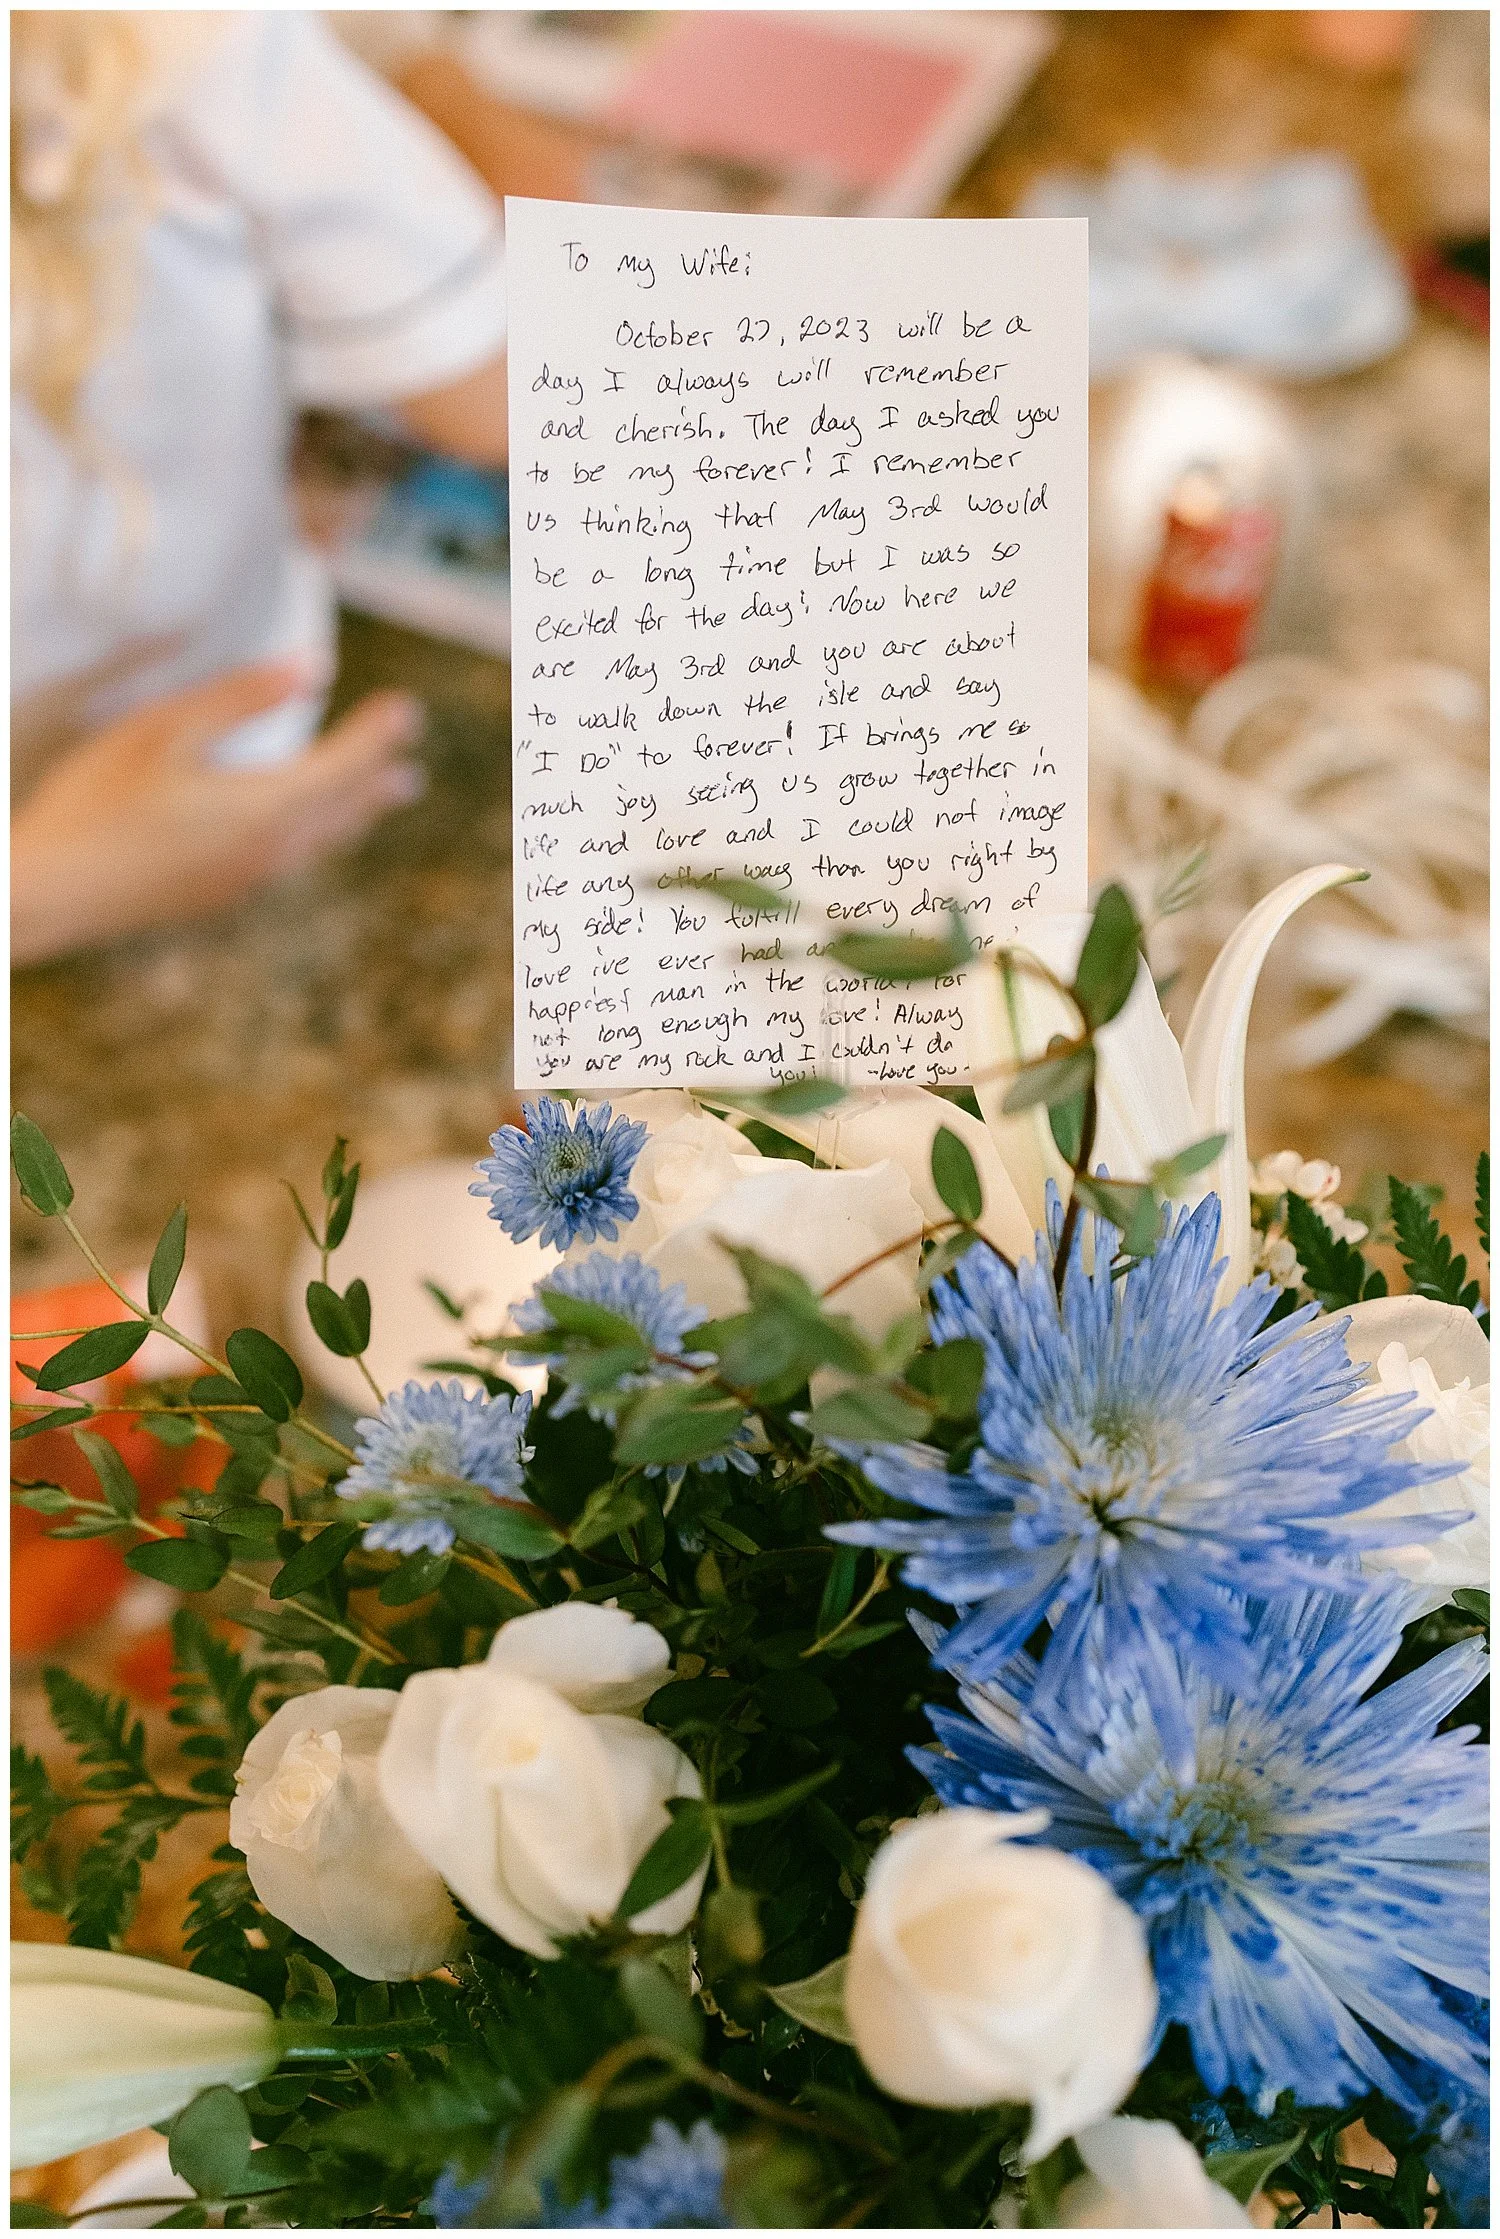 To My Wife:
October 27, 2023 will be a
day I always will remember
and cherish. The day I asked you
to be my forever! I remember
us thinking that May 3rd would
be a long time but I was so
excited for the day! Now here we
are May 3rd and you are about
to walk down the isle and say
"I Do" to forever! It brings me so
much joy seeing us grow together in
life and love and I could not image
life any other way than you right by
my side! You fulfill every dream of
love i've ever had
happiest man in the world! For
not long enough my love! Alway
you are my rock and I couldn't do
you! -Love you-